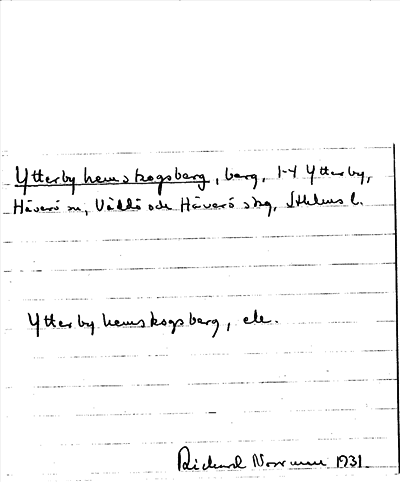 Ytterby hemskogsberg, berg, 1-4 Ytterby,
Häverö sn, Väddö och Häverö skg, Sthlms l.
Ytterby hemskogsberg, ele.
Rickard 1931